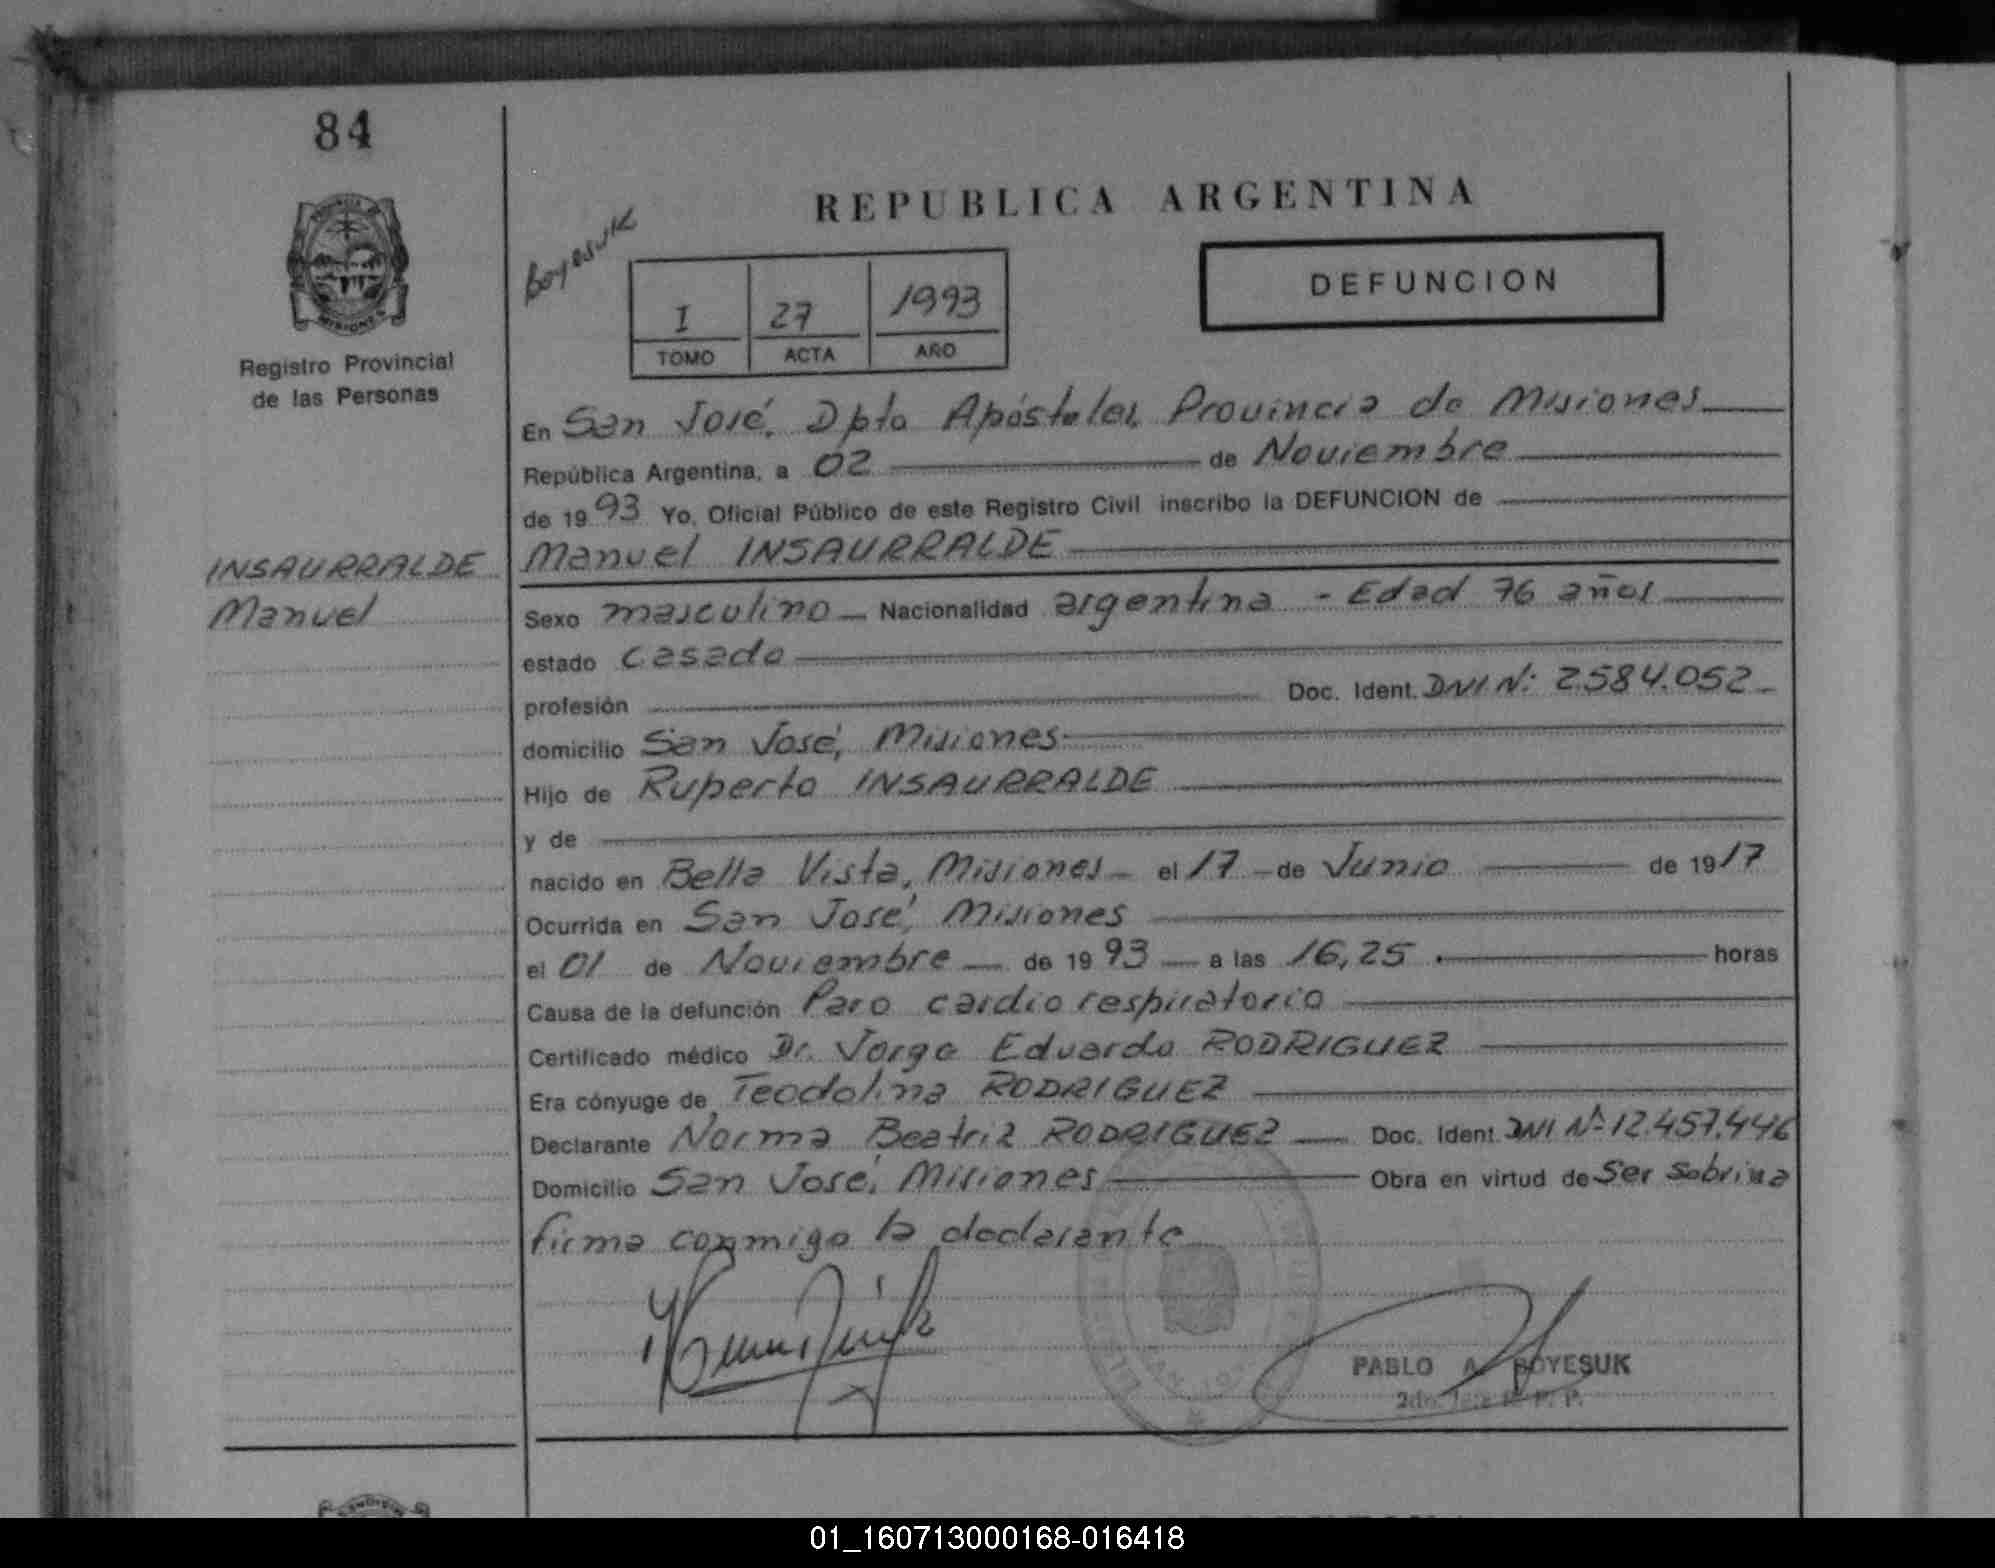 84
PROVINCIA DE
MISIONES
Registro Provincial
de las Personas
INSAURRALDE
Manuel
REPUBLICA ARGENTINA
Boyesuk
I 27 1993
TOMO ACTA AÑO
DEFUNCION
En San José, Dpto Apóstoles, Provincia de Misiones
República Argentina, a 02 de Noviembre
de 1993 Yo, Oficial Público de este Registro Civil inscribo la DEFUNCION de
Manuel INSAURRALDE
Sexo masculino Nacionalidad argentina - Edad 76 años
estado casado
profesión Doc. Ident. DNI Nº: 2.584.052
domicilio San José, Misiones
Hijo de Ruperto INSAURRALDE
y de
nacido en Bella Vista, Misiones el 17 de Junio de 1917
Ocurrida en San José, Misiones
el 01 de Noviembre de 1993 a las 16,25 horas
Causa de la defunción Paro cardiorespiratorio
Certificado médico Dr. Jorge Eduardo RODRIGUEZ
Era cónyuge de Teodolina RODRIGUEZ
Declarante Norma Beatriz RODRIGUEZ Doc. Ident. DNI Nº 12.457.446
Domicilio San José, Misiones Obra en virtud de Ser Sobrina
firma conmigo la declarante
PABLO A. BOYESUK
2do. Jefe R. P. P.
01_160713000168-016418